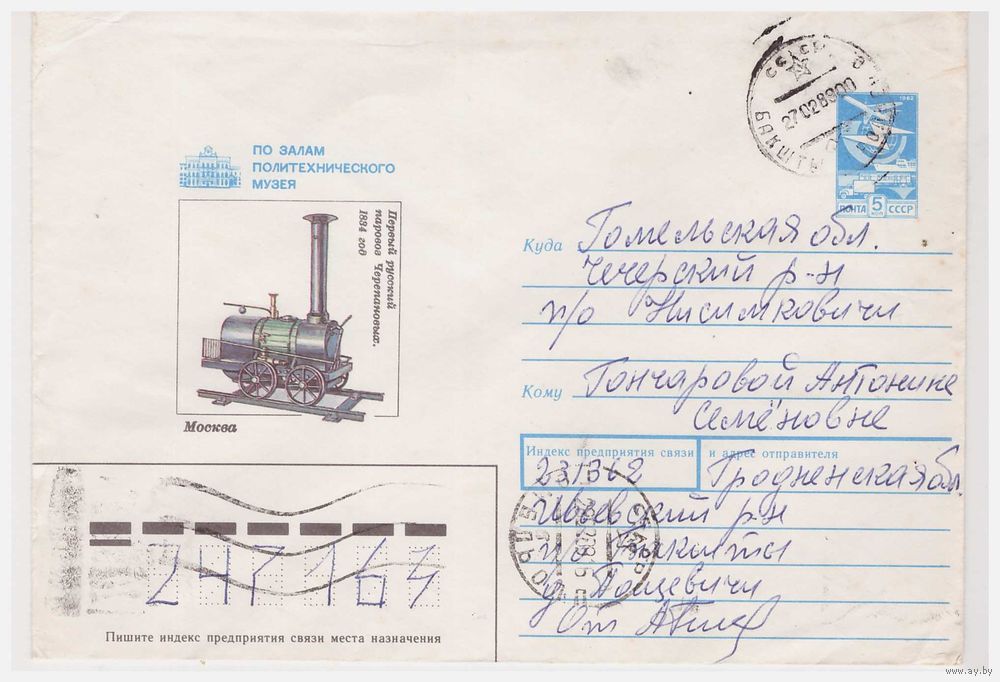 ПО ЗАЛАМ
ПОЛИТЕХНИЧЕСКОГО
МУЗЕЯ
Первый русский
паровоз Черепановых.
1834 год
Москва
БАКШТЫ
27028900
1982
ПОЧТА 5 КОП СССР
Куда Гомельская обл.
Чечерский р-н
п/о Нисимковичи
Кому Гончаровой Антонине
Семёновне
Индекс предприятия связи и адрес отправителя
231362 Гродненская обл.
Ивьевский р-н
п/о Бакшты
д. Поцевичи
От
247163
Пишите индекс предприятия связи места назначения
www.ay.by